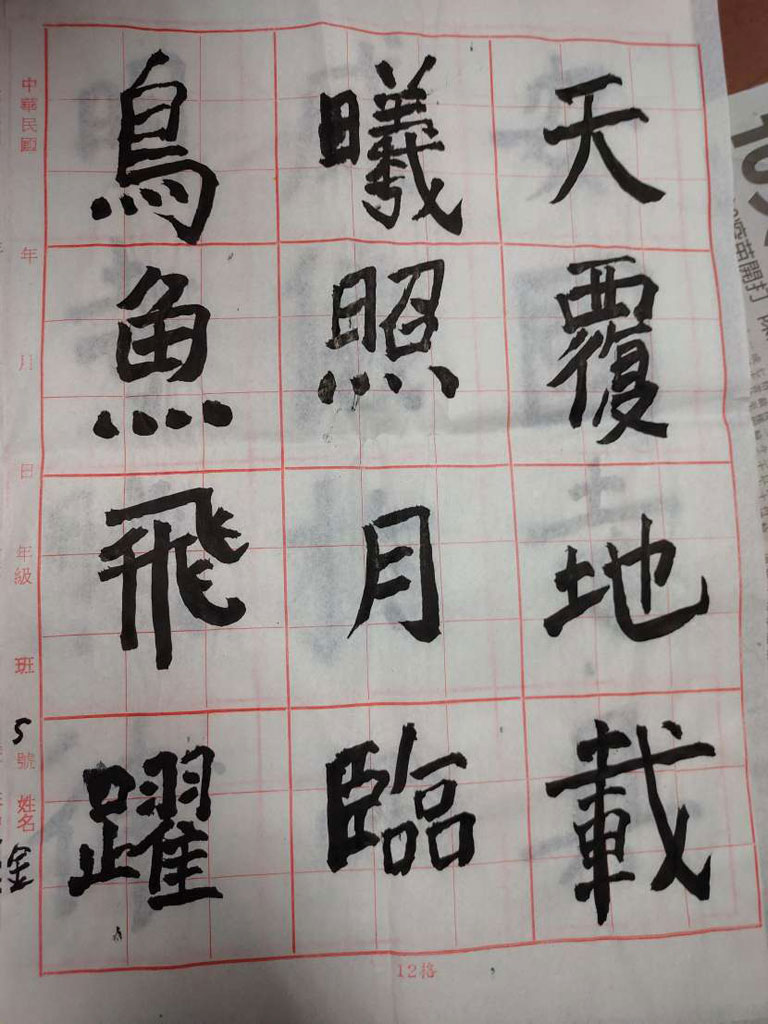 天覆地載
曦照月臨
鳥魚飛躍
中華民國 年 月 日 年級 班 5 號 姓名 金
12格